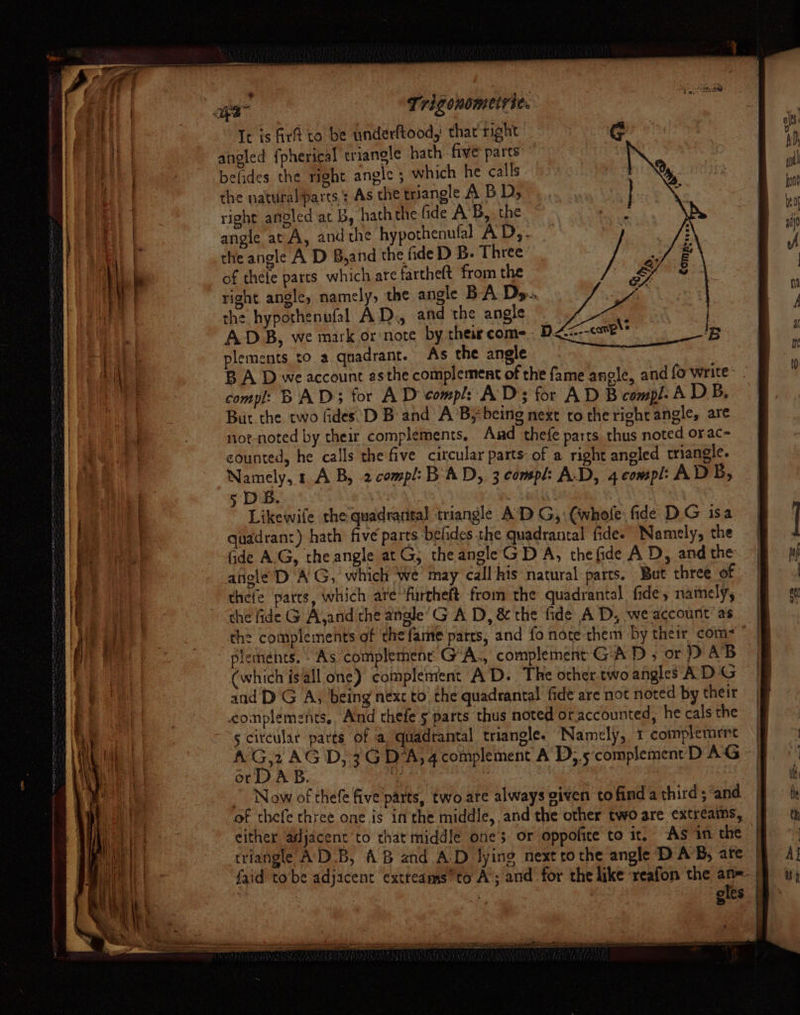 Trigonometrie.
It is first to be understood, that right
angled spherical triangle hath five parts
besides the right angle; which he calls
the natural parts: As the triangle A B D,
right angled at B, hath the side A B, the
angle at A, and the hypothenusal A D,
the angle A D B, and the side D B. Three
of these parts which are farthest from the
right angle, namely, the angle B A D,
the hypothenusal A D, and the angle
A D B, we mark or note by their com-
plements to a quadrant. As the angle
B A D we account as the complement of the same angle, and so write
compl: B A D; for A D compl: A D; for A D B compl. A D B.
But the two sides D B and A B, being next to the right angle, are
not noted by their complements. And these parts thus noted or ac-
counted, he calls the five circular parts of a right angled triangle.
Namely, 1 A B, 2 compl: B A D, 3 compl: A D, 4 compl: A D B,
5 D B.
Likewise the quadrantal triangle A D G, (whose side D G is a
quadrant) hath five parts besides the quadrantal side. Namely, the
side A G, the angle at G, the angle G D A, the side A D, and the
angle D A G, which we may call his natural parts. But three of
these parts, which are furthest from the quadrantal side, namely,
the side G A, and the angle G A D, & the side A D, we account as
the complements of the same parts, and so note them by their com-
plements. As complement G A, complement G A D, or D A B
(which is all one) complement A D. The other two angles A D G
and D G A, being next to the quadrantal side are not noted by their
complements. And these 5 parts thus noted or accounted, he cals the
5 circular parts of a quadrantal triangle. Namely, 1 complement
A G, 2 A G D, 3 G D A, 4 complement A D, 5 complement D A G
or D A B.
Now of these five parts, two are always given to find a third; and
of these three one is in the middle, and the other two are extreams,
either adjacent to that middle one; or opposite to it. As in the
triangle A D B, A B and A D lying next to the angle D A B, are
said to be adjacent extreams to A; and for the like reason the an-
gles
G
D
B
compl: